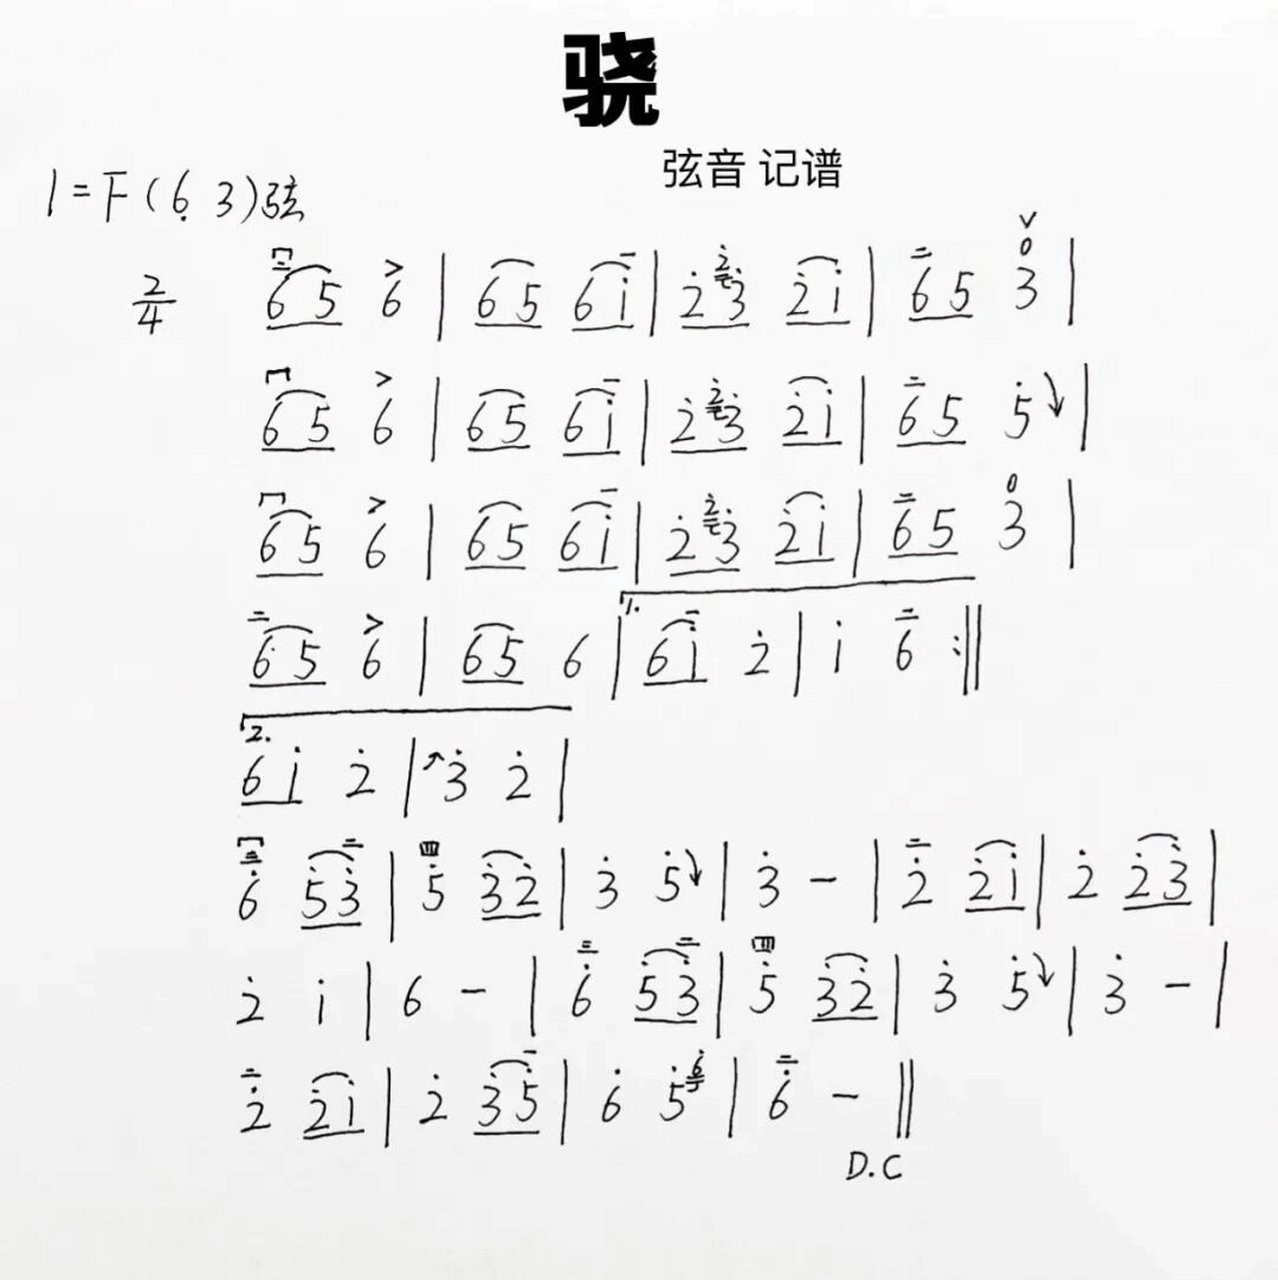 骁
弦音 记谱
1=F(6̣ 3)弦
2/4 6 5 6 | 6 5 6 i̇ | 2̇ 3̇ 2̇ i̇ | 6 5 3 |
6 5 6 | 6 5 6 i̇ | 2̇ 3̇ 2̇ i̇ | 6 5 5̇ |
6 5 6 | 6 5 6 i̇ | 2̇ 3̇ 2̇ i̇ | 6 5 3̇ |
1.
6 5 6 | 6 5 6 | 6 i̇ 2̇ | i̇ 6 :‖
2.
6 i̇ 2̇ | 3̇ 2̇ |
6̇ 5̇ 3̇ | 5̇ 3̇ 2̇ | 3̇ 5̇ | 3̇ - | 2̇ 2̇ i̇ | 2̇ 2̇ 3̇ |
2̇ i̇ | 6 - | 6̇ 5̇ 3̇ | 5̇ 3̇ 2̇ | 3̇ 5̇ | 3̇ - |
2̇ 2̇ i̇ | 2̇ 3̇ 5̇ | 6̇ 5̇ | 6̇ - ‖
D.C